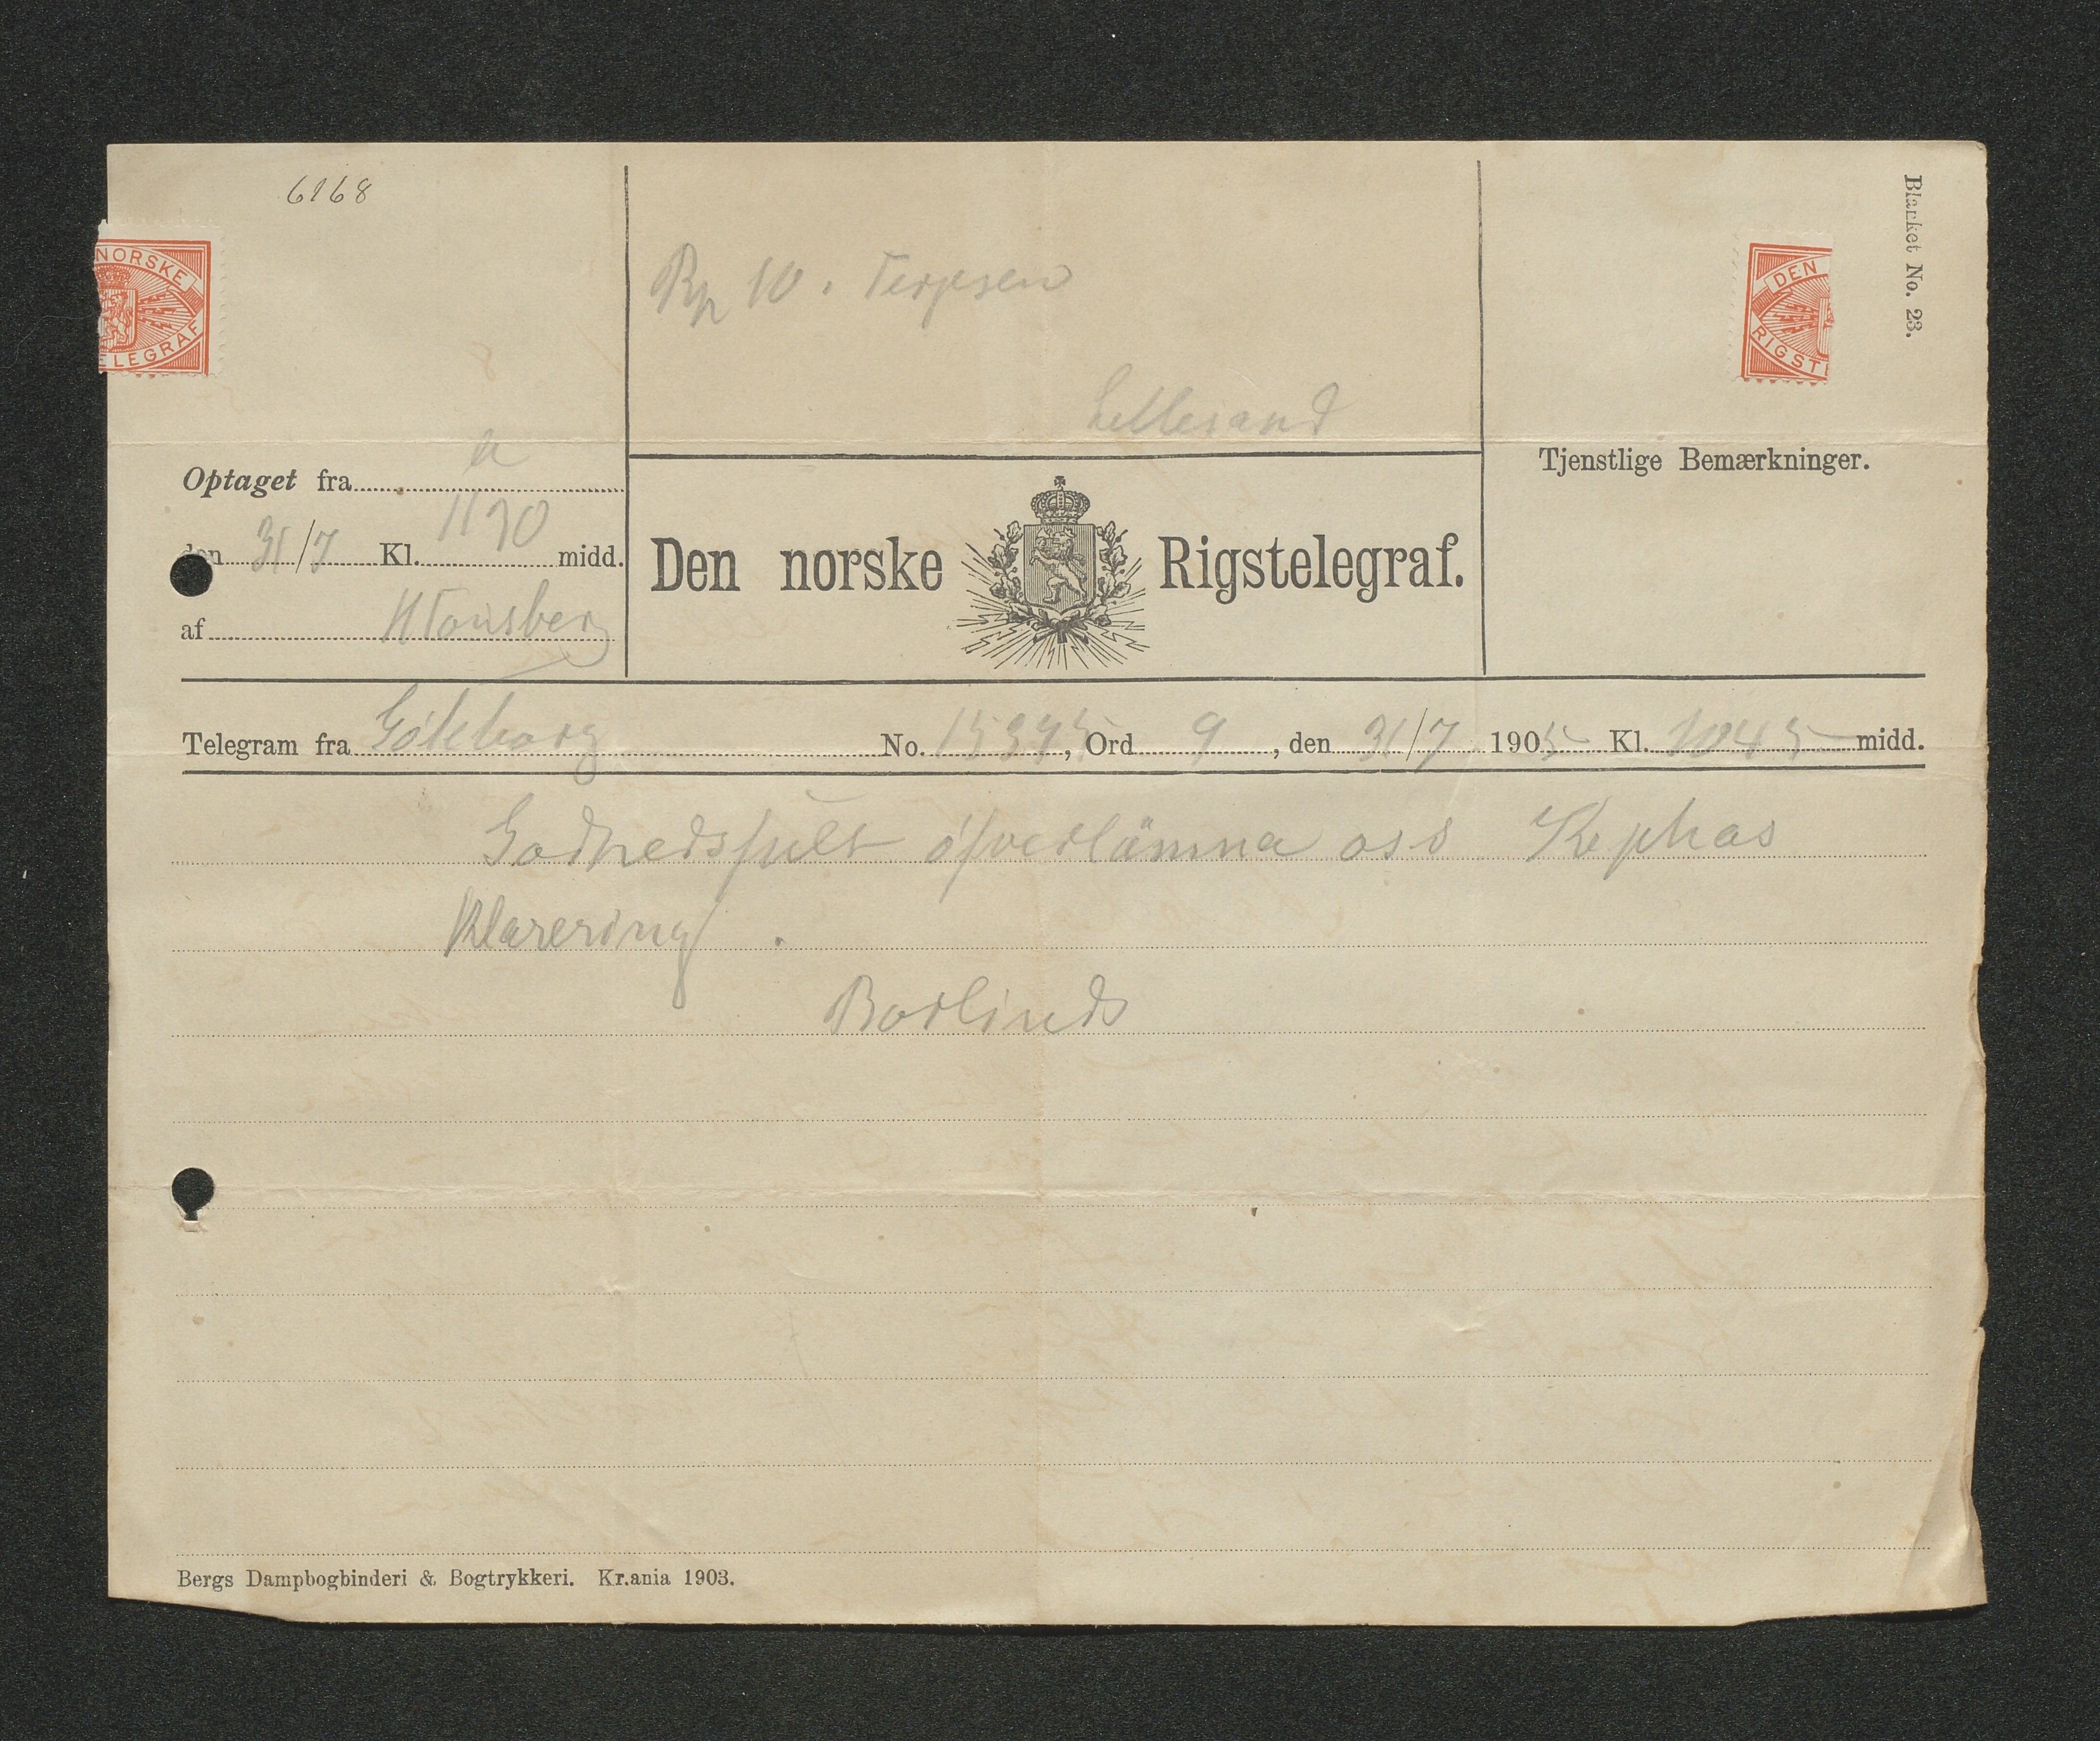 6168
Blanket No. 23.
NORSKE
TELEGRAF
DEN
RIGST
Rp 10. Terjesen
Lillesand
Tjenstlige Bemærkninger.
Optaget fra a
den 31/7 Kl. midd.
af HTønsberg
Den norske Rigstelegraf.
Telegram fra Göteborg No. , Ord 9, den 31/7 1905 Kl. 1045 midd.
Godhedsfult öfverlämna oss Kephas
Klarering.
Borlinds
Bergs Dampbogbinderi & Bogtrykkeri. Kr.ania 1903.